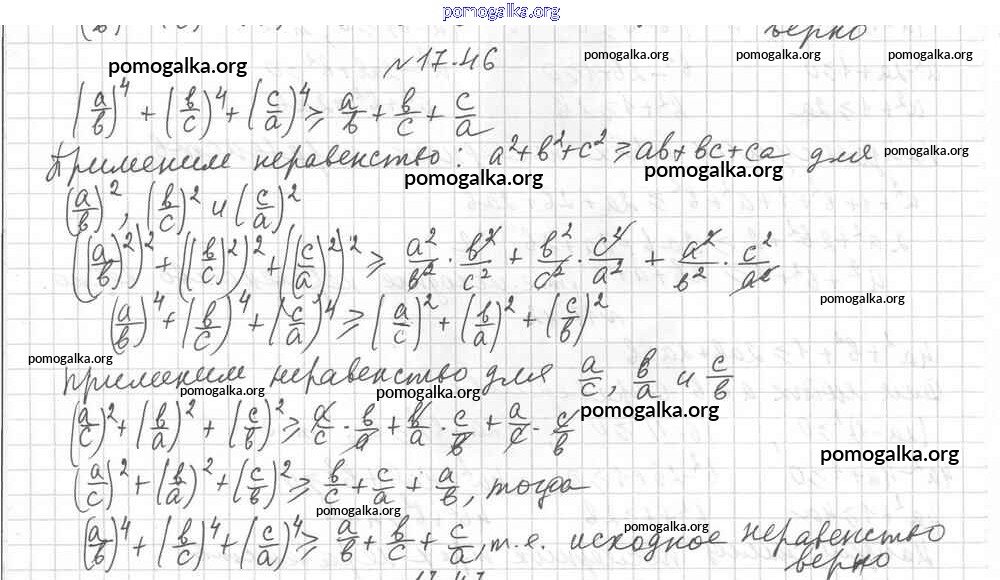 pomogalka.org
верно
№17.46
pomogalka.org pomogalka.org pomogalka.org pomogalka.org
(a/b)^4 + (b/c)^4 + (c/a)^4 ≥ a/b + b/c + c/a
Применим неравенство: a²+b²+c² ≥ ab+bc+ca для pomogalka.org
pomogalka.org pomogalka.org
(a/b)², (b/c)² и (c/a)²
((a/b)²)² + ((b/c)²)² + ((c/a)²)² ≥ a²/b² · b²/c² + b²/c² · c²/a² + a²/b² · c²/a²
(a/b)^4 + (b/c)^4 + (c/a)^4 ≥ (a/c)² + (b/a)² + (c/b)²
pomogalka.org
pomogalka.org
применим неравенство для a/c, b/a и c/b
pomogalka.org pomogalka.org pomogalka.org
(a/c)² + (b/a)² + (c/b)² ≥ a/c · b/a + b/a · c/b + a/c · c/b
pomogalka.org
(a/c)² + (b/a)² + (c/b)² ≥ b/c + c/a + a/b, тогда
pomogalka.org pomogalka.org
(a/b)^4 + (b/c)^4 + (c/a)^4 ≥ a/b + b/c + c/a, т.е. исходное неравенство
верно
17.47